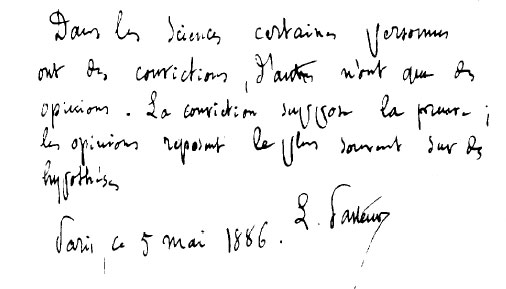 Dans les Sciences certaines personnes
ont des convictions, d'autres n'ont que des
opinions. La conviction suppose la preuve ;
les opinions reposent le plus souvent sur des
hypothèses
L. Pasteur
Paris, ce 5 mai 1886.